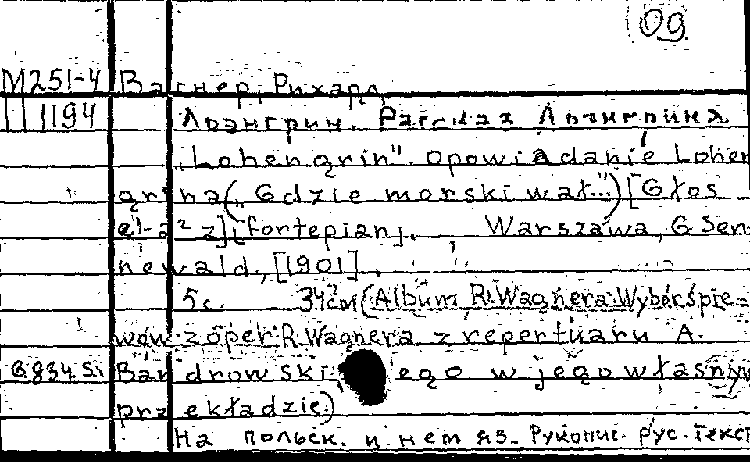 09
М251-4 Вагнер, Рихард
1194 Лоэнгрин. Рассказ Лоэнгрина
"Lohengrin". Opowiadanie Lohen
grina ("Gdzie morski wał...") [Głos
e¹-a² z] [fortepian]. Warszawa, G. Sen
newald, [1901].
5с. 34см (Album R. Wagnera. Wybór śpie-
wów z oper R. Wagnera z repertuaru A.
Bandrowskiego w jego własnym
przekładzie)
На польск. и нем яз. Рукопис. рус. текст